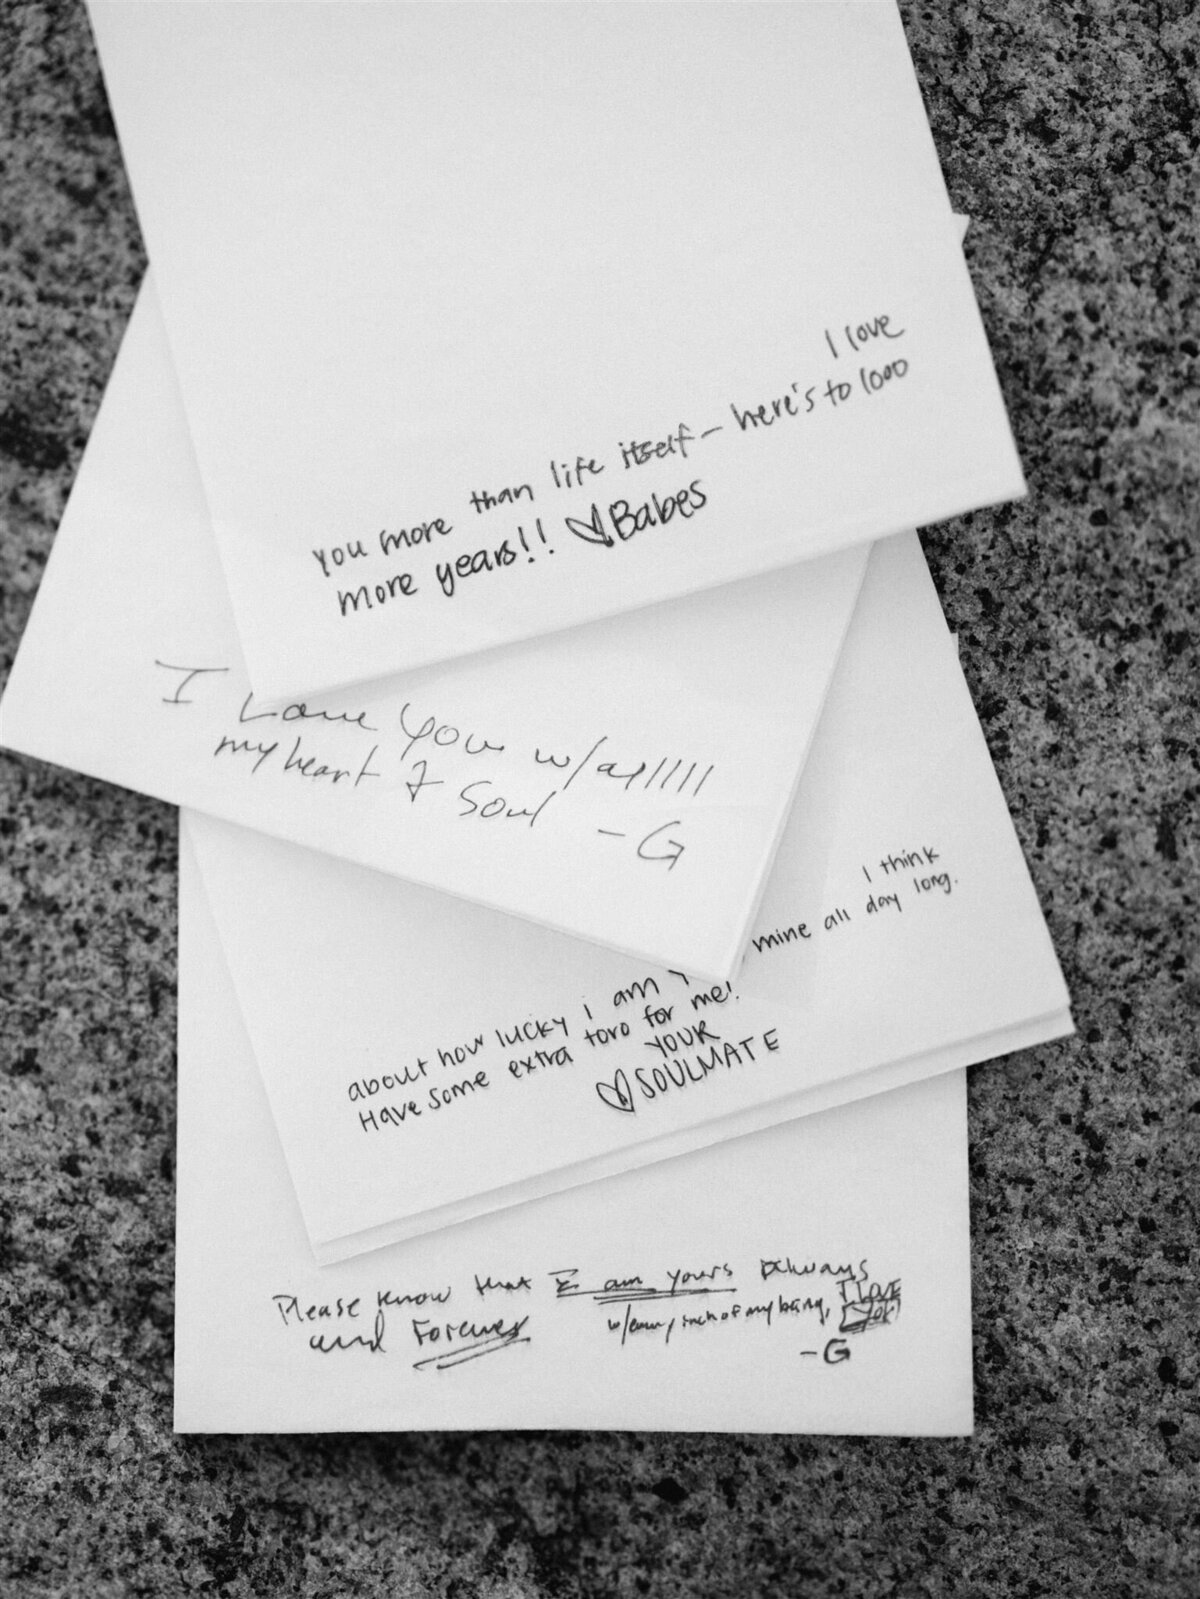 I love
you more than life itself – here's to 1000
more years!! ♡Babes
I Love You w/allllll
my heart & Soul -G
I think
about how lucky i am mine all day long.
Have some extra toro for me!
YOUR
♡SOULMATE
Please know that I am yours Always
and Forever w/every inch of my being, I LOVE
YOU!
-G